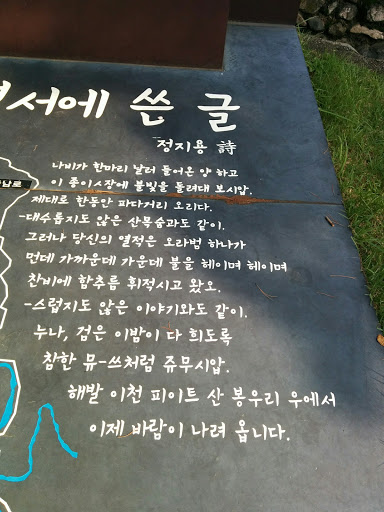 서에 쓴 글
정지용 詩
나비가 한마리 날러 들어온 양 하고
이 종이ㅅ장에 불빛을 돌려대 보시압.
제대로 한동안 파다거리 오리다.
-대수롭지도 않은 산목숨과도 같이.
그러나 당신의 열적은 오라범 하나가
먼데 가까운데 가운데 불을 헤이며 헤이며
찬비에 함추름 휘적시고 왔오.
-스럽지도 않은 이야기와도 같이.
누나, 검은 이밤이 다 희도록
참한 뮤-쓰처럼 쥬무시압.
해발 이천 피이트 산 봉우리 우에서
이제 바람이 나려 옵니다.
남로